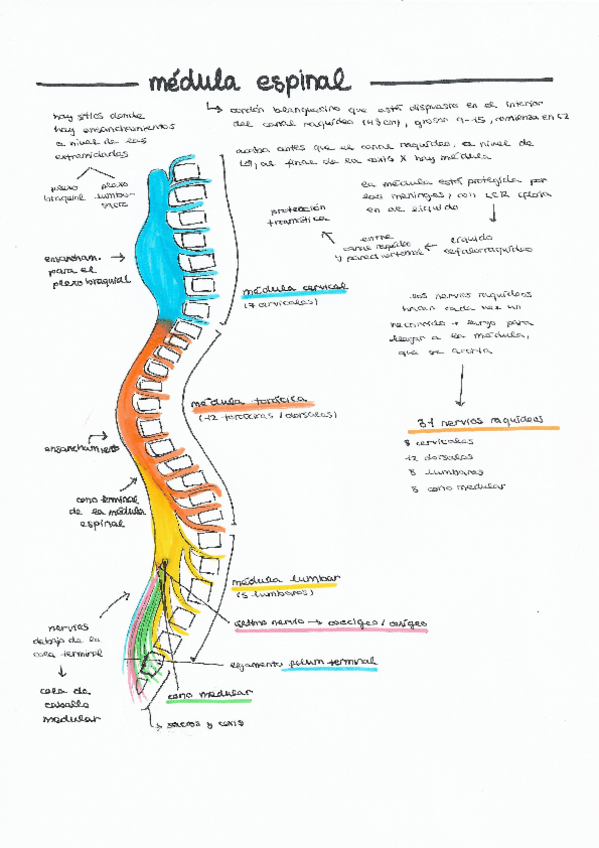 médula espinal
↳ cordón blanquecino que está dispuesto en el interior
del canal raquídeo (43cm), grosor 9-15, comienza en C2
acaba antes que el canal raquídeo, a nivel de
al final de la coxis X hay médula
hay sitios donde
hay ensanchamientos
a nivel de las
extremidades
plexo braquial
plexo lumbo-sacro
la médula está protegida por
las meninges, con LCR
en de líquido
líquido
cefalorraquídeo
entre
canal raquídeo
y pared vertebral
protección
traumática
ensancham.
para el
plexo braquial
médula cervical
(7 cervicales)
los nervios raquídeos
hacen cada vez un
recorrido + largo para
llegar a la médula,
que se acorta
31 nervios raquídeos
8 cervicales
12 dorsales
5 lumbares
5 cono medular
médula torácica
(12 torácicas / dorsales)
ensanchamiento
cono terminal
de la médula
espinal
médula lumbar
(5 lumbares)
último nervio → coccígeo / coxígeo
nervios
debajo de la
cola terminal
cola de
caballo
medular
ligamento filum terminal
cono medular
↳ sacros y coxis